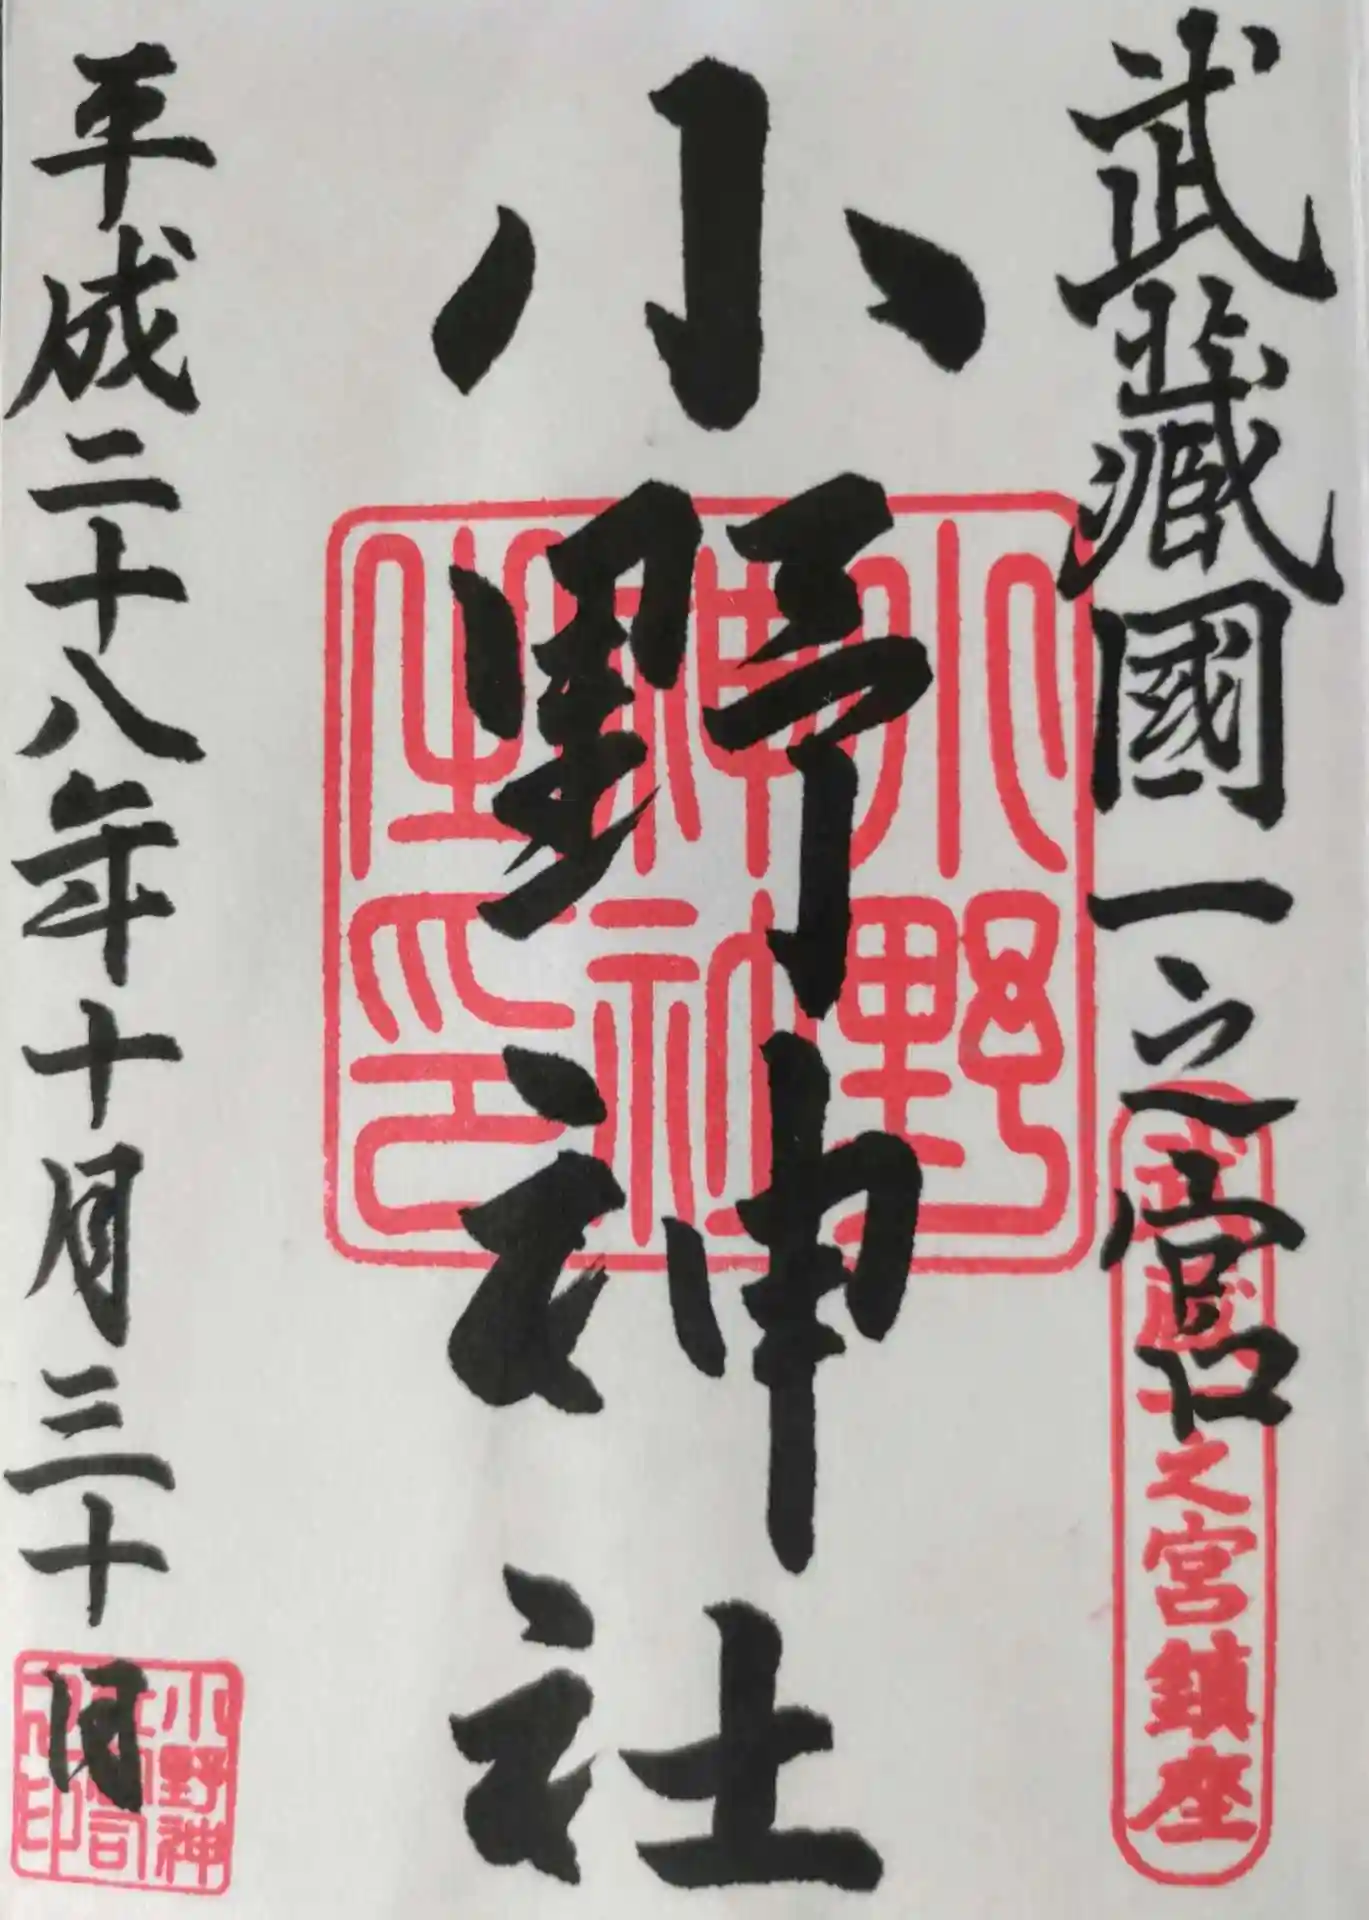 武蔵國一之宮
武蔵一之宮鎮座
小野神社
小野神社之印
平成二十八年十月三十日
小野神社宮司之印